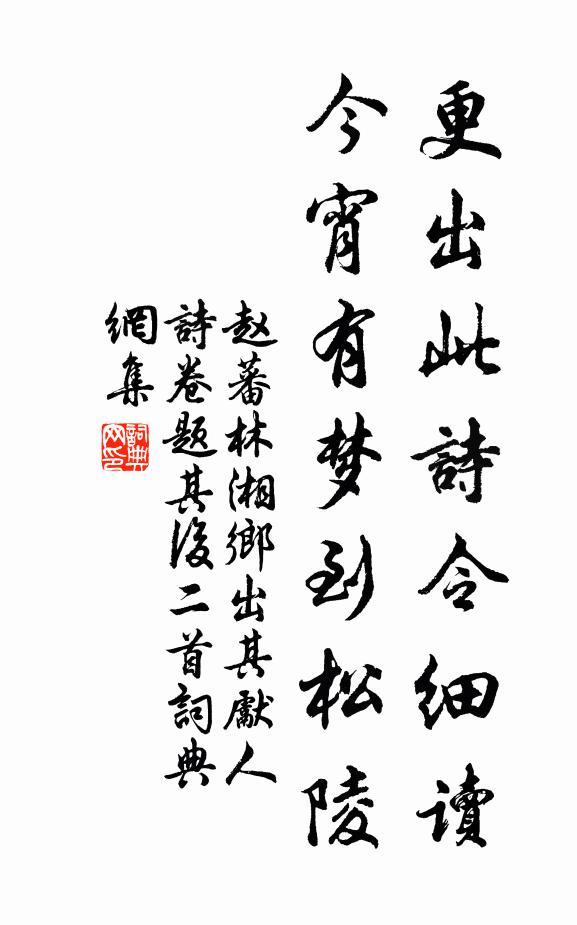 更出此詩令细讀
今宵有梦到松陵
赵蕃林湘鄉出其獻人
詩卷題其後二首詞典
網集
詞典
网印